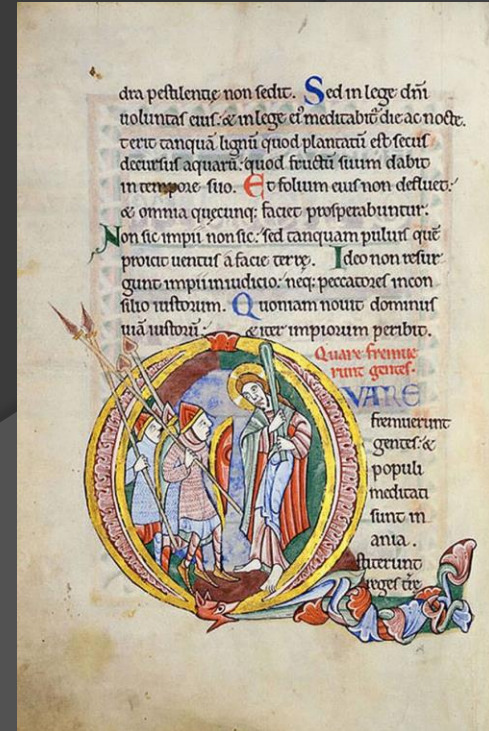 dra pestilentie non sedit. Sed in lege dñi
uoluntas eius: & in lege ei᷒ meditabit᷑ die ac nocte.
t erit tanquā lignū quod plantatū est secus
decursus aquarū: quod fructū suum dabit
in tempore suo. Et folium eius non defluet:
& omnia quecunq; faciet prosperabuntur.
Non sic impii non sic: sed tanquam puluis quē
proicit uentus a facie terre. Ideo non resur
gunt impii in iudicio: neq; peccatores in con
silio iustorum. Quoniam nouit dominus
uiā iustorū: & iter impiorum peribit.
Quare fremue
runt gentes.
QVARE
fremuerunt
gentes: &
populi
meditati
sunt in
ania.
stiterunt
reges t̄re